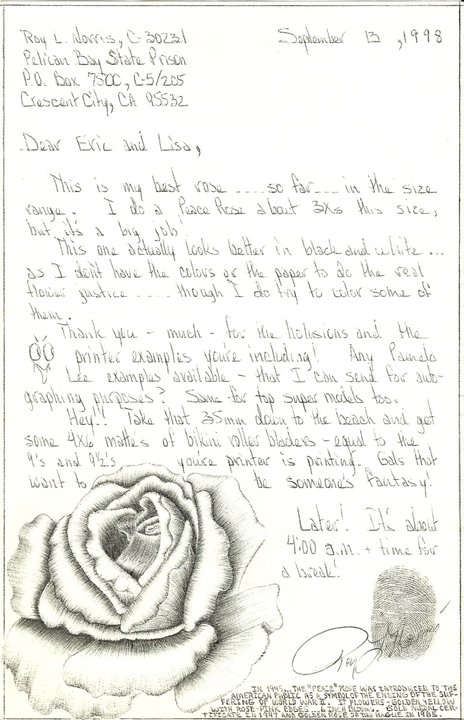 Roy L. Norris, C-30231 September 13, 1998
Pelican Bay State Prison
P.O. Box 7500, C-5/205
Crescent City, CA 95532
Dear Eric and Lisa,
This is my best rose .... so far .... in the size
range. I do a Peace Rose about 3Xs this size,
but it's a big job!
This one actually looks better in black and white ...
as I don't have the colors or the paper to do the real
flower justice .... though I do try to color some of
them.
Thank you - much - for the and the
printer examples you're including! Any Pamela
Lee examples available - that I can send for auto-
graphing purposes? Same for top super models too.
Hey!! Take that 35mm down to the beach and get
some 4X6 mattes of bikini roller bladers - equal to the
9's and 9½'s you're printer is printing. Gals that
want to be someone's fantasy!
Later! It's about
4:00 a.m. + time for
a break!
Roy L. Norris
IN 1945...THE "PEACE" ROSE WAS INTRODUCED TO THE
AMERICAN PUBLIC AS A SYMBOL OF THE ENDING OF THE SUF-
FERING OF WORLD WAR II. IT FLOWERS - GOLDEN YELLOW
WITH ROSE-PINK EDGES...6 INCH BLOOMS. GOLD MEDAL CER-
TIFICATE IN 1947 AND GOLDEN ROSE OF THE HAGUE IN 1965.